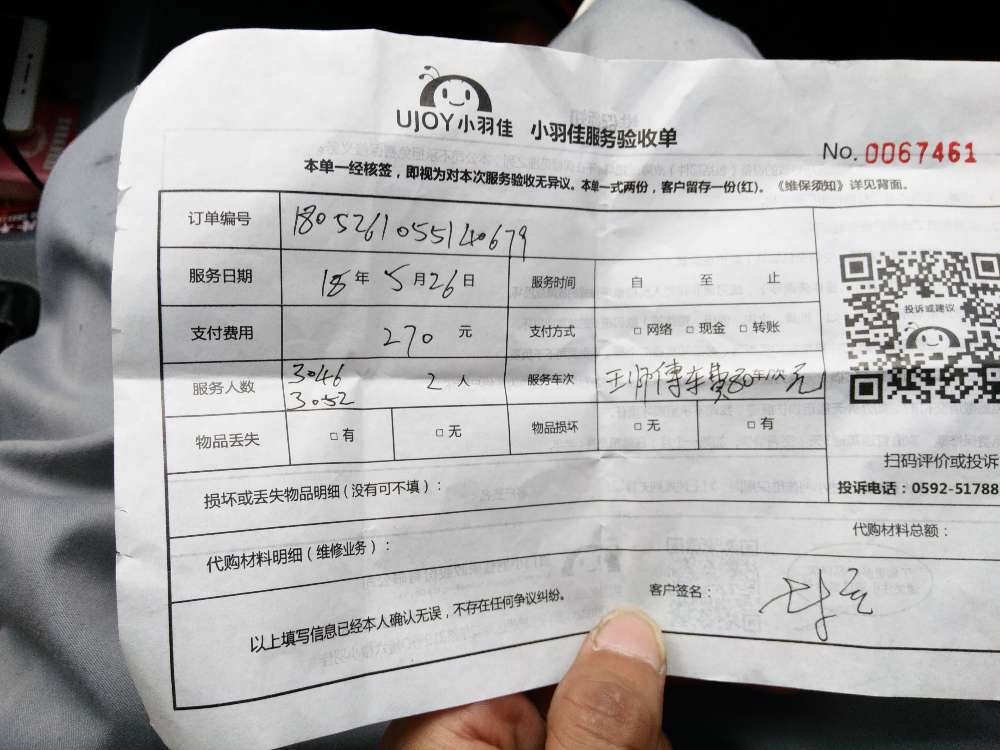 UJOY小羽佳 小羽佳服务验收单
No. 0067461
本单一经核签，即视为对本次服务验收无异议。本单一式两份，客户留存一份(红)。《维保须知》详见背面。
订单编号 180526105514679
服务日期 18年5月26日 服务时间 自 至 止
支付费用 270元 支付方式 □网络 □现金 □转账
服务人数 3046 3052 2人 服务车次 王师傅车费80 元
物品丢失 □有 □无 物品损坏 □无 □有
投诉或建议
扫码评价或投诉
投诉电话：0592-51788
损坏或丢失物品明细(没有可不填)：
代购材料明细(维修业务)： 代购材料总额：
以上填写信息已经本人确认无误，不存在任何争议纠纷。 客户签名：